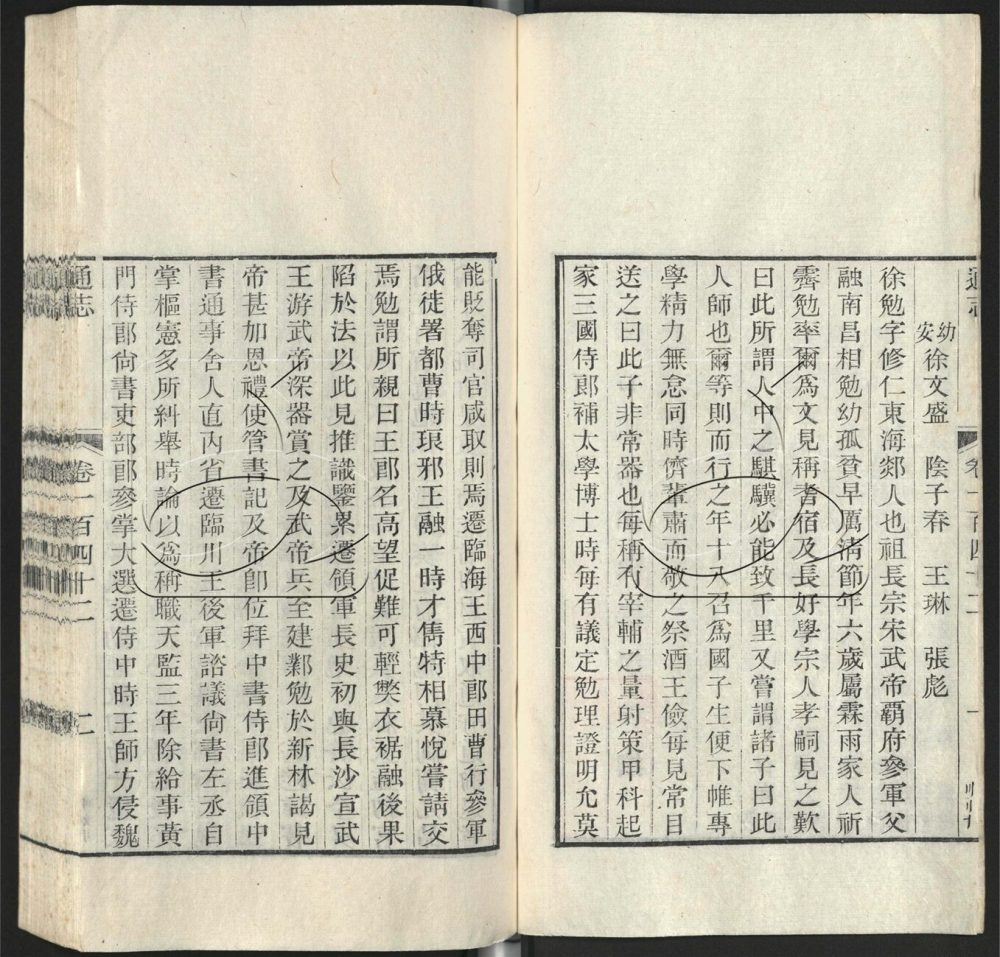 通志
卷一百四十二
一
幼安徐文盛 陰子春 王琳 張彪
徐勉字修仁東海郯人也祖長宗宋武帝霸府參軍父
融南昌相勉幼孤貧早厲淸節年六歲屬霖雨家人祈
霽勉率爾爲文見稱耆宿及長好學宗人孝嗣見之歎
曰此所謂人中之騏驥必能致千里又嘗謂諸子曰此
人師也爾等則而行之年十八召爲國子生便下帷專
學精力無怠同時儕輩肅而敬之祭酒王儉每見常目
送之曰此子非常器也每稱有宰輔之量射策甲科起
家王國侍郎補太學博士時每有議定勉理證明允莫
能貶奪司官咸取則焉遷臨海王西中郎田曹行參軍
俄徙署都曹時琅邪王融一時才雋特相慕悅嘗請交
焉勉謂所親曰王郎名高望促難可輕弊衣裾融後果
陷於法以此見推識鑒累遷領軍長史初與長沙宣武
王游武帝深器賞之及武帝兵至建鄴勉於新林謁見
帝甚加恩禮使管書記及帝卽位拜中書侍郎進領中
書通事舍人直內省遷臨川王後軍諮議尙書左丞自
掌樞憲多所糾舉時論以爲稱職天監三年除給事黃
門侍郎尙書吏部郎參掌大選遷侍中時王師方侵魏
通志
卷一百四十二
二